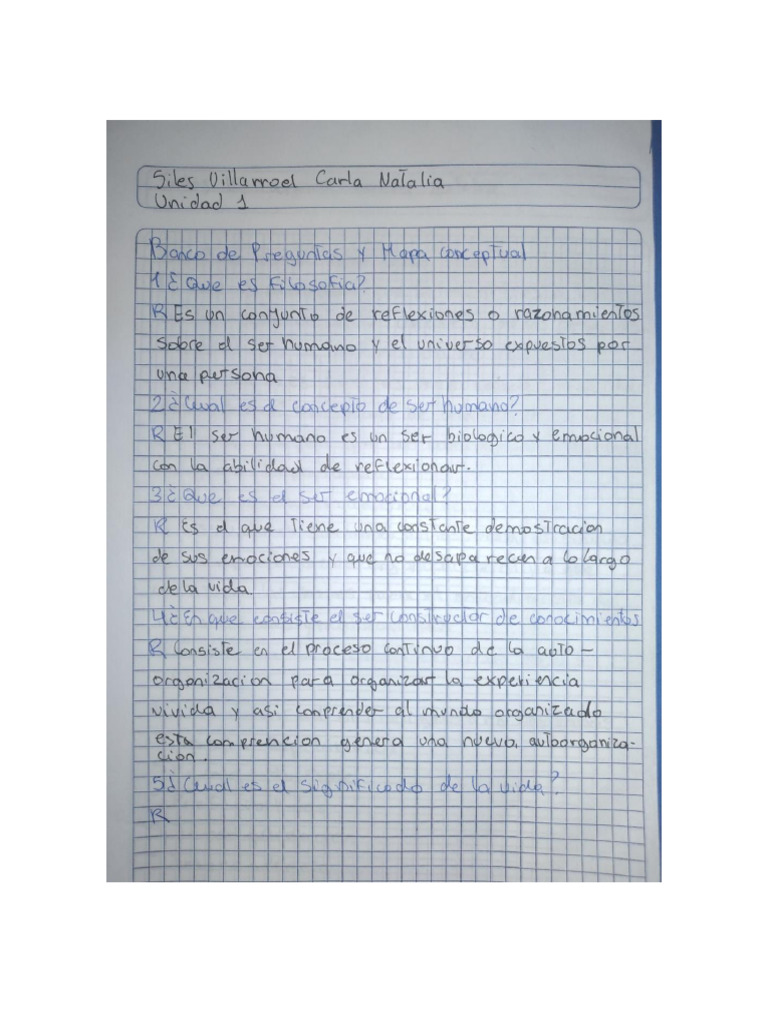 Siles Villarroel Carla Natalia
Unidad 1
Banco de Preguntas y Mapa conceptual
1¿Que es Filosofia?
R Es un conjunto de reflexiones o razonamientos
sobre el ser humano y el universo expuestos por
una persona
2¿Cual es el concepto de ser humano?
R El ser humano es un ser biologico y emocional
con la abilidad de reflexionar.
3¿Que es el ser emocional?
R Es el que tiene una constante demostracion
de sus emociones y que no desaparecen a lo largo
de la vida.
4¿En que consiste el ser constructor de conocimientos
R Consiste en el proceso continuo de la auto-
organizacion para organizar la experiencia
vivida y asi comprender al mundo organizado
esta comprencion genera una nueva autoorganiza-
cion.
5¿Cual es el significado de la vida?
R